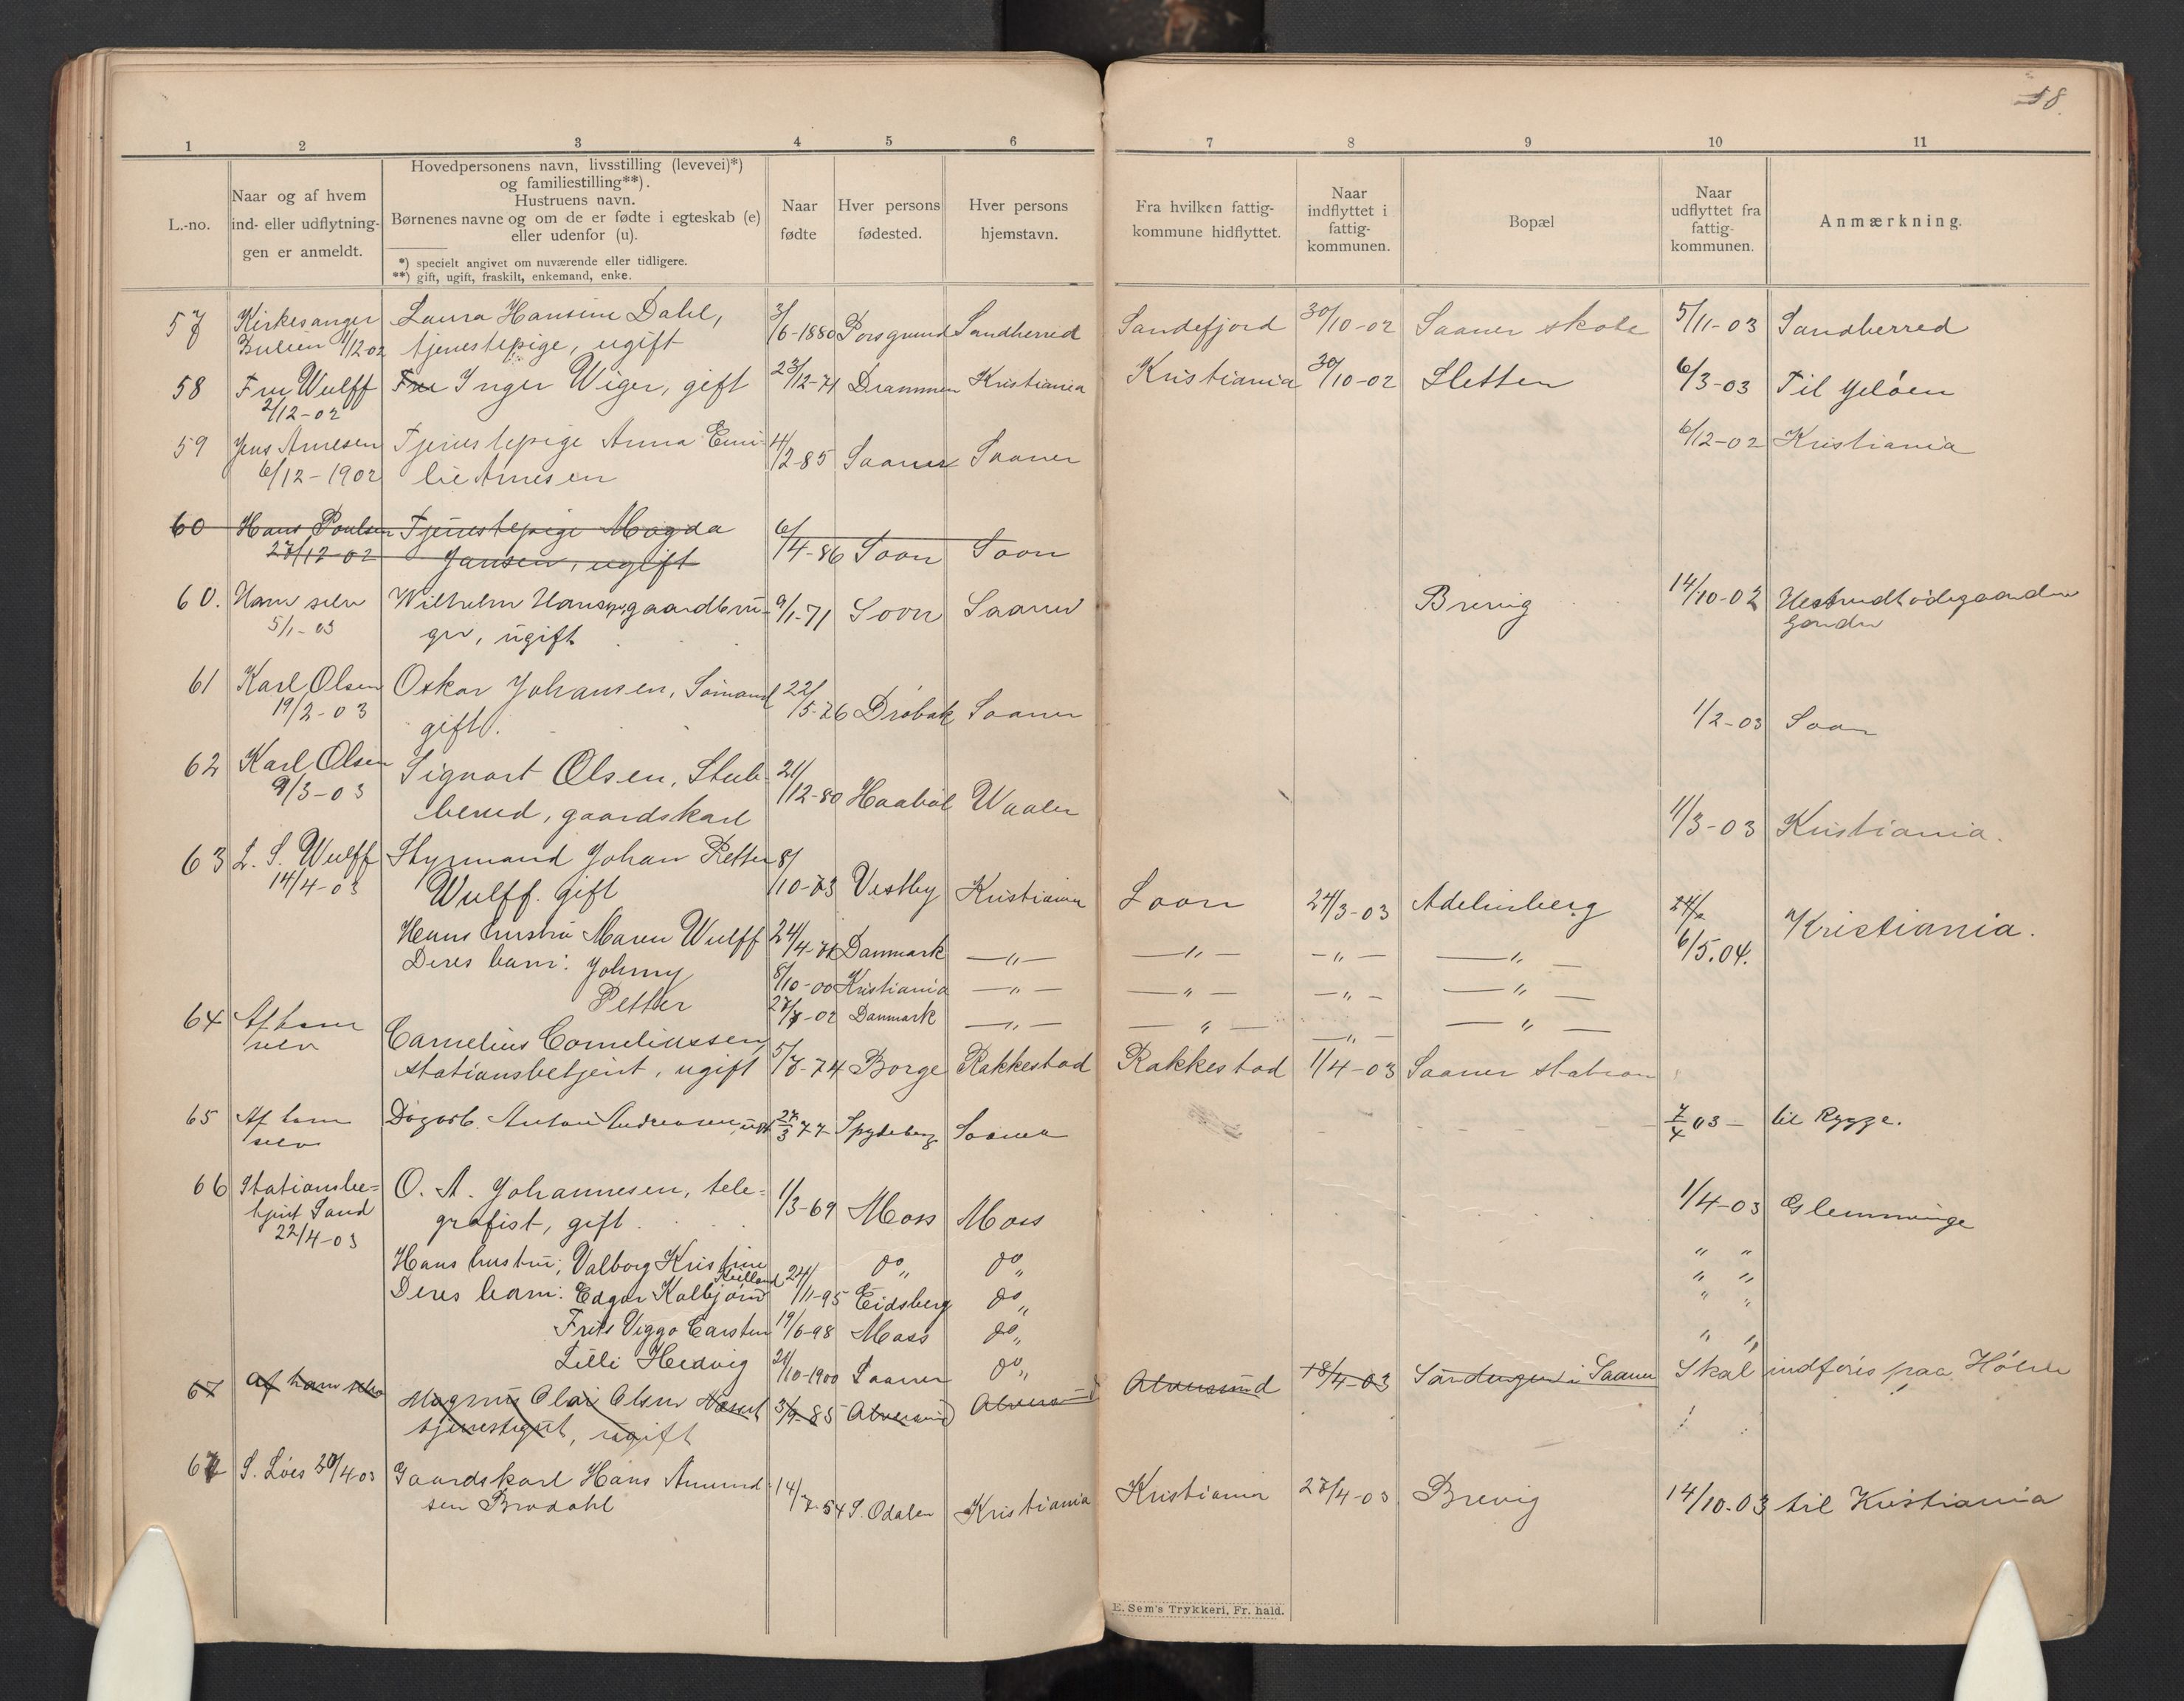 58.
1 2 3 4 5 6 7 8 9 10 11
L.-no.
Naar og af hvem
ind- eller udflytnin-
gen er anmeldt.
Hovedpersonens navn, livsstilling (levevei)*)
og familiestilling**).
Hustruens navn.
Børnenes navne og om de er fødte i egteskab (e)
eller udenfor (u).
*) specielt angivet om nuværende eller tidligere.
**) gift, ugift, fraskilt, enkemand, enke.
Naar
fødte
Hver persons
fødested.
Hver persons
hjemstavn.
Fra hvilken fattig-
kommune hidflyttet.
Naar
indflyttet i
fattig-
kommunen.
Bopæl
Naar
udflyttet fra
fattig-
kommunen.
Anmærkning.
57 Kirkesanger Laura Hansine Dahl, 3/6-1880 Porsgrund Sandherred Sandefjord 30/10-02 Saaner skole 5/11-03 Sandherred
1/12-02 tjenestepige, ugift
58 Fru Wulff Fru Inger Wiger, gift 23/12-71 Drammen Kristiania Kristiania 30/10-02 Sletten 6/3-03 Til Jeløen
2/12-02
59 Jens Arnesen Tjenestepige Anna Emi- 4/2-85 Saaner Saaner 6/12-02 Kristiania
6/12-1902 lie Arnesen
60 Hans Poulsen Tjenestepige Magda 6/4-86 Soon Soon
27/12-02 Jansen, ugift
60. Ham selv Wilhelm Hansen, gaardbru- 9/1-71 Soon Saaner Brevig 14/10-02
5/1-03 ger, ugift
61 Karl Olsen Oskar Johansen, Sømand 22/5-76 Drøbak Saaner 1/2-03 Soon
19/2-03 gift.
62 Karl Olsen Sigvart Olsen, Stub- 21/12-80 Haabøl Waaler 11/3-03 Kristiania.
9/3-03 berud, gaardskarl
63 L. S. Wulff Styrmand Johan Petter 8/10-73 Vestby Kristiania Soon 24/3-03 Adelersberg 24/2
14/4-03 Wulff. gift
Hans hustru Maren Wulff 24/4-78 Danmark —„— —„— —„— —„— 6/5.04. Kristiania.
Deres barn: Johnny 8/10-00 Kristiania —„— —„— —„— —„—
Petter 27/7-02 Danmark —„— —„— —„— —„—
64 Af ham Cornelius Corneliussen,
selv stationsbetjent, ugift 5/7-74 Borge Rakkestad Rakkestad 1/4-03 Saaner station
65 Af ham Anton Andreasen, ugift 27/3 77 Spydeberg Saaner 7/4 03 — til Rygge.
selv
66 Stationsbe= O. A. Johannesen, tele= 1/3-69 Moss Moss 1/4-03 Glemminge
tjent Sand grafist, gift.
22/4-03
Hans hustru; Valborg Kristine do„ do„ „ „
Deres barn: Edgar Kolbjørn 24/11-95 Eidsberg do„ „ „
Frits Viggo Carsten 19/6-98 Moss do„ „ „
Lilli Hedvig 21/10-1900 Saaner do„ „ „
67 Af ham selv Magnus Olai Olsen 3/9-85 Alversund Alversund Alversund 18/4-03 Søndengen i Saaner Skal indføres paa Hølen
tjenestegut, ugift
67 S. Lies 30/4 03 Gaardskarl Hans Amund- 14/7-54 S. Odalen Kristiania Kristiania 27/4-03 Brevig 14/10-03 til Kristiania
sen Brodahl
E. Sem's Trykkeri, Fr. hald.